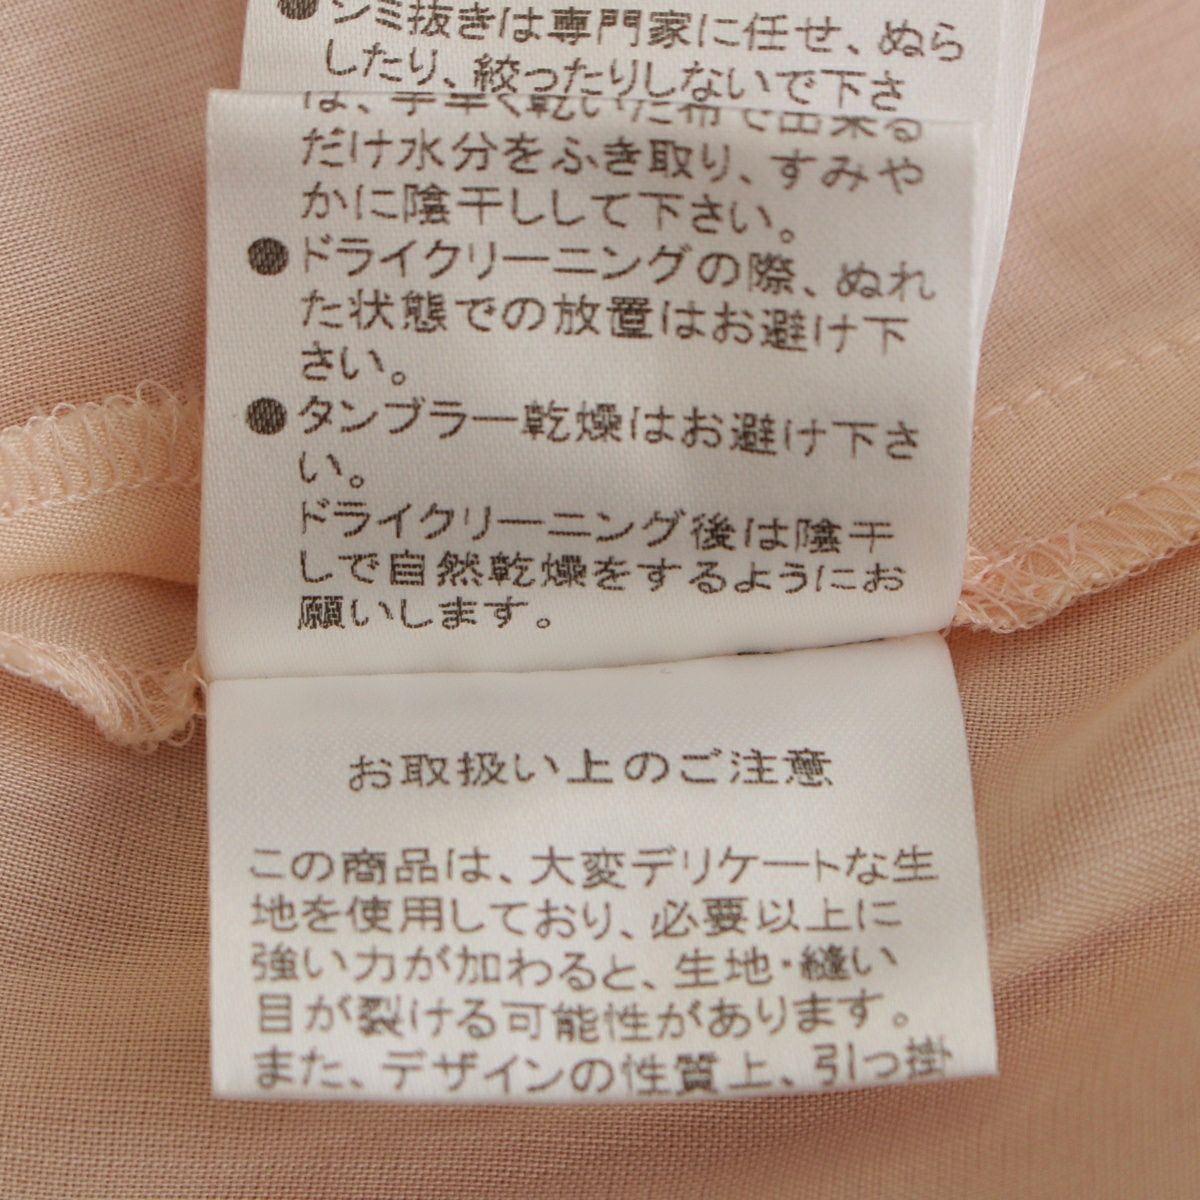 ●シミ抜きは専門家に任せ、ぬら
したり、絞ったりしないで下さ
は、手早く乾いた布で出来る
だけ水分をふき取り、すみや
かに陰干しして下さい。
●ドライクリーニングの際、ぬれ
た状態での放置はお避け下
さい。
●タンブラー乾燥はお避け下さ
い。
ドライクリーニング後は陰干
しで自然乾燥をするようにお
願いします。
お取扱い上のご注意
この商品は、大変デリケートな生
地を使用しており、必要以上に
強い力が加わると、生地・縫い
目が裂ける可能性があります。
また、デザインの性質上、引っ掛